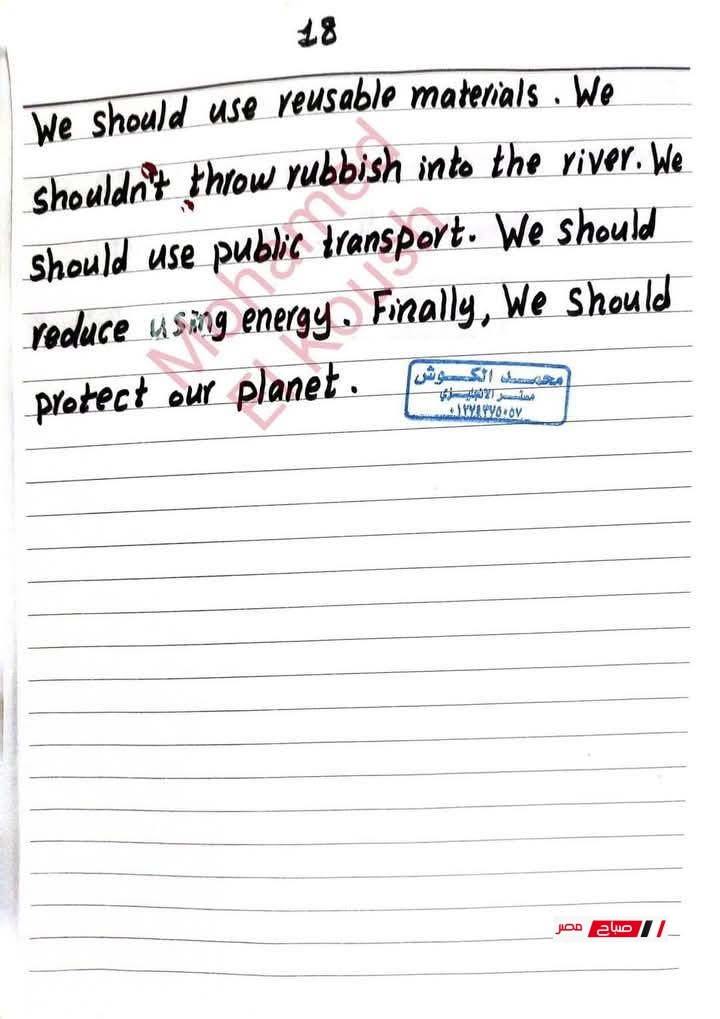 18
We should use reusable materials. We
shouldn't throw rubbish into the river. We
should use public transport. We should
reduce using energy. Finally, We should
protect our planet.
Mohamed
El Koush
محمد الكوش
معلم الانجليزي
صباح مصر